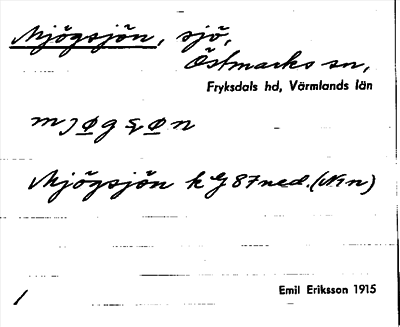 Mjögsjön, sjö,
Östmarks sn,
Fryksdals hd, Värmlands län
Mjögsjön k G 87 ned. (N1n)
Emil Eriksson 1915
/